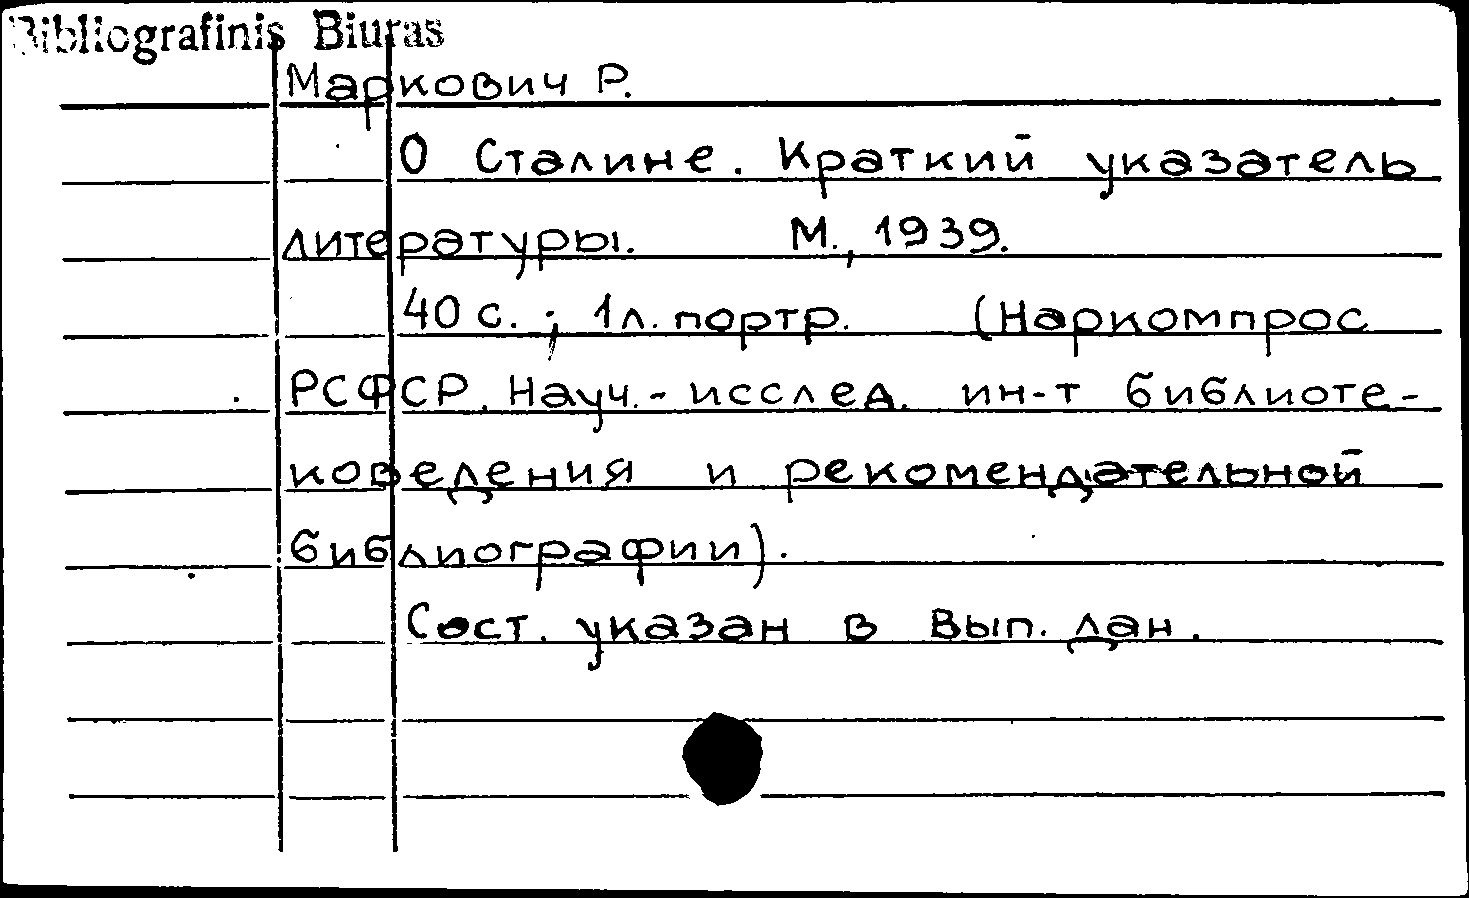 Bibliografinis Biuras
Маркович Р.
О Сталине. Краткий указатель
литературы. М., 1939.
40 с. ; 1 л. портр. (Наркомпрос
РСФСР. Науч.- исслед. ин-т библиоте-
коведения и рекомендательной
библиографии).
Сост. указан в вып. дан.